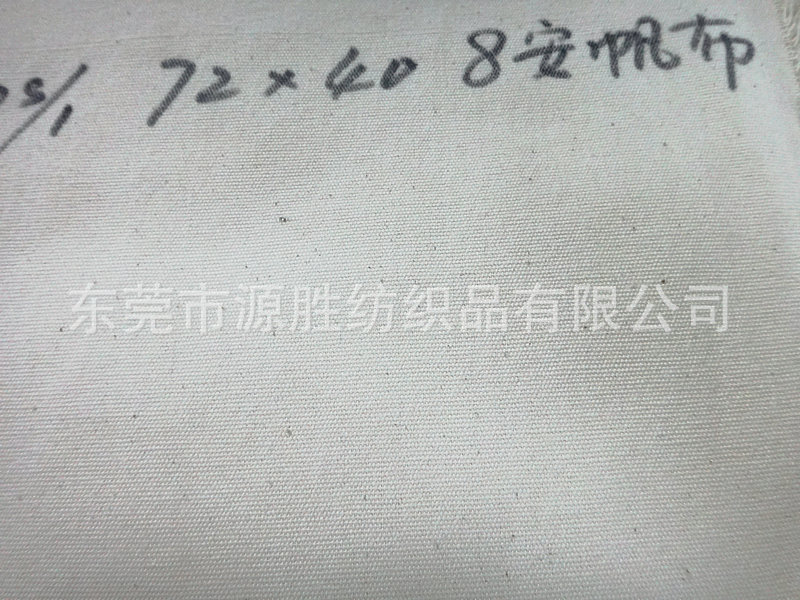 0s/1 72×40 8安帆布
东莞市源胜纺织品有限公司